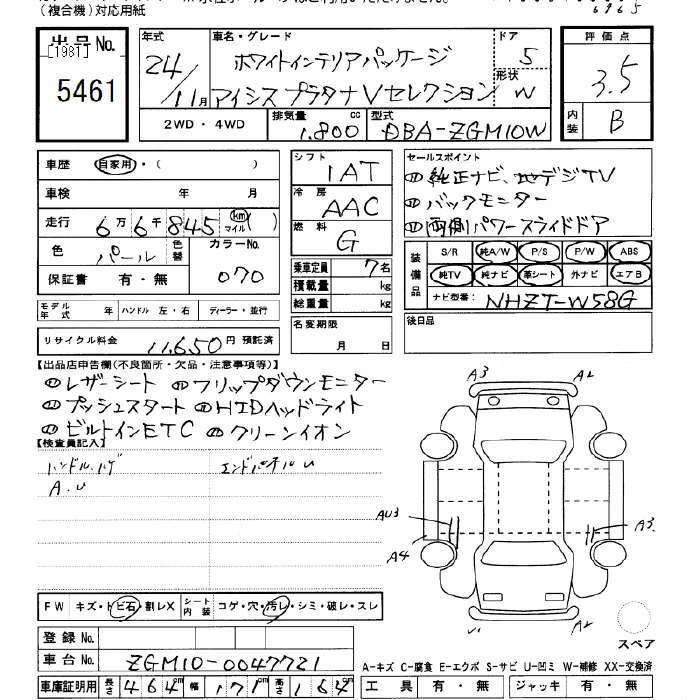 (複合機)対応用紙
6965
出品No.
[1981]
5461
年式
24/11月
車名・グレード
ホワイトインテリアパッケージ
アイシス プラタナVセレクション
ドア
5
形状
W
評価点
3.5
内装
B
2WD・4WD
排気量
1.800 cc
型式
DBA-ZGM10W
車歴 自家用・( )
車検 年 月
走行 6万6千845 km マイル( )
色 パール 色替 カラーNo. 070
保証書 有・無
モデル年式 年 ハンドル 左・右 ディーラー・並行
リサイクル料金 11.650円 預託済
シフト
IAT
冷房
AAC
燃料
G
乗車定員 7名
積載量 kg
総重量 kg
名変期限
月 日
セールスポイント
純正ナビ、地デジTV
バックモニター
両側パワースライドドア
装備品
S/R 純A/W P/S P/W ABS
純TV 純ナビ 革シート 外ナビ エアB
ナビ型番: NHZT-W58G
後日品
【出品店申告欄(不良箇所・欠品・注意事項等)】
レザーシート フリップダウンモニター
プッシュスタート HIDヘッドライト
ビルトインETC クリーンイオン
【検査員記入】
ハンドル、ハゲ エンドパネルU
A.U
A3
A2
AU3
A4
A3
A2
スペア
FW キズ・トビ石・割レX シート内装 コゲ・穴・汚レ・シミ・破レ・スレ
登録No.
車台No. ZGM10-0047721
車庫証明用 長さ 464cm 幅 171cm 高さ 164cm
A-キズ C-腐食 E-エクボ S-サビ U-凹ミ W-補修 XX-交換済
工具 有・無 ジャッキ 有・無